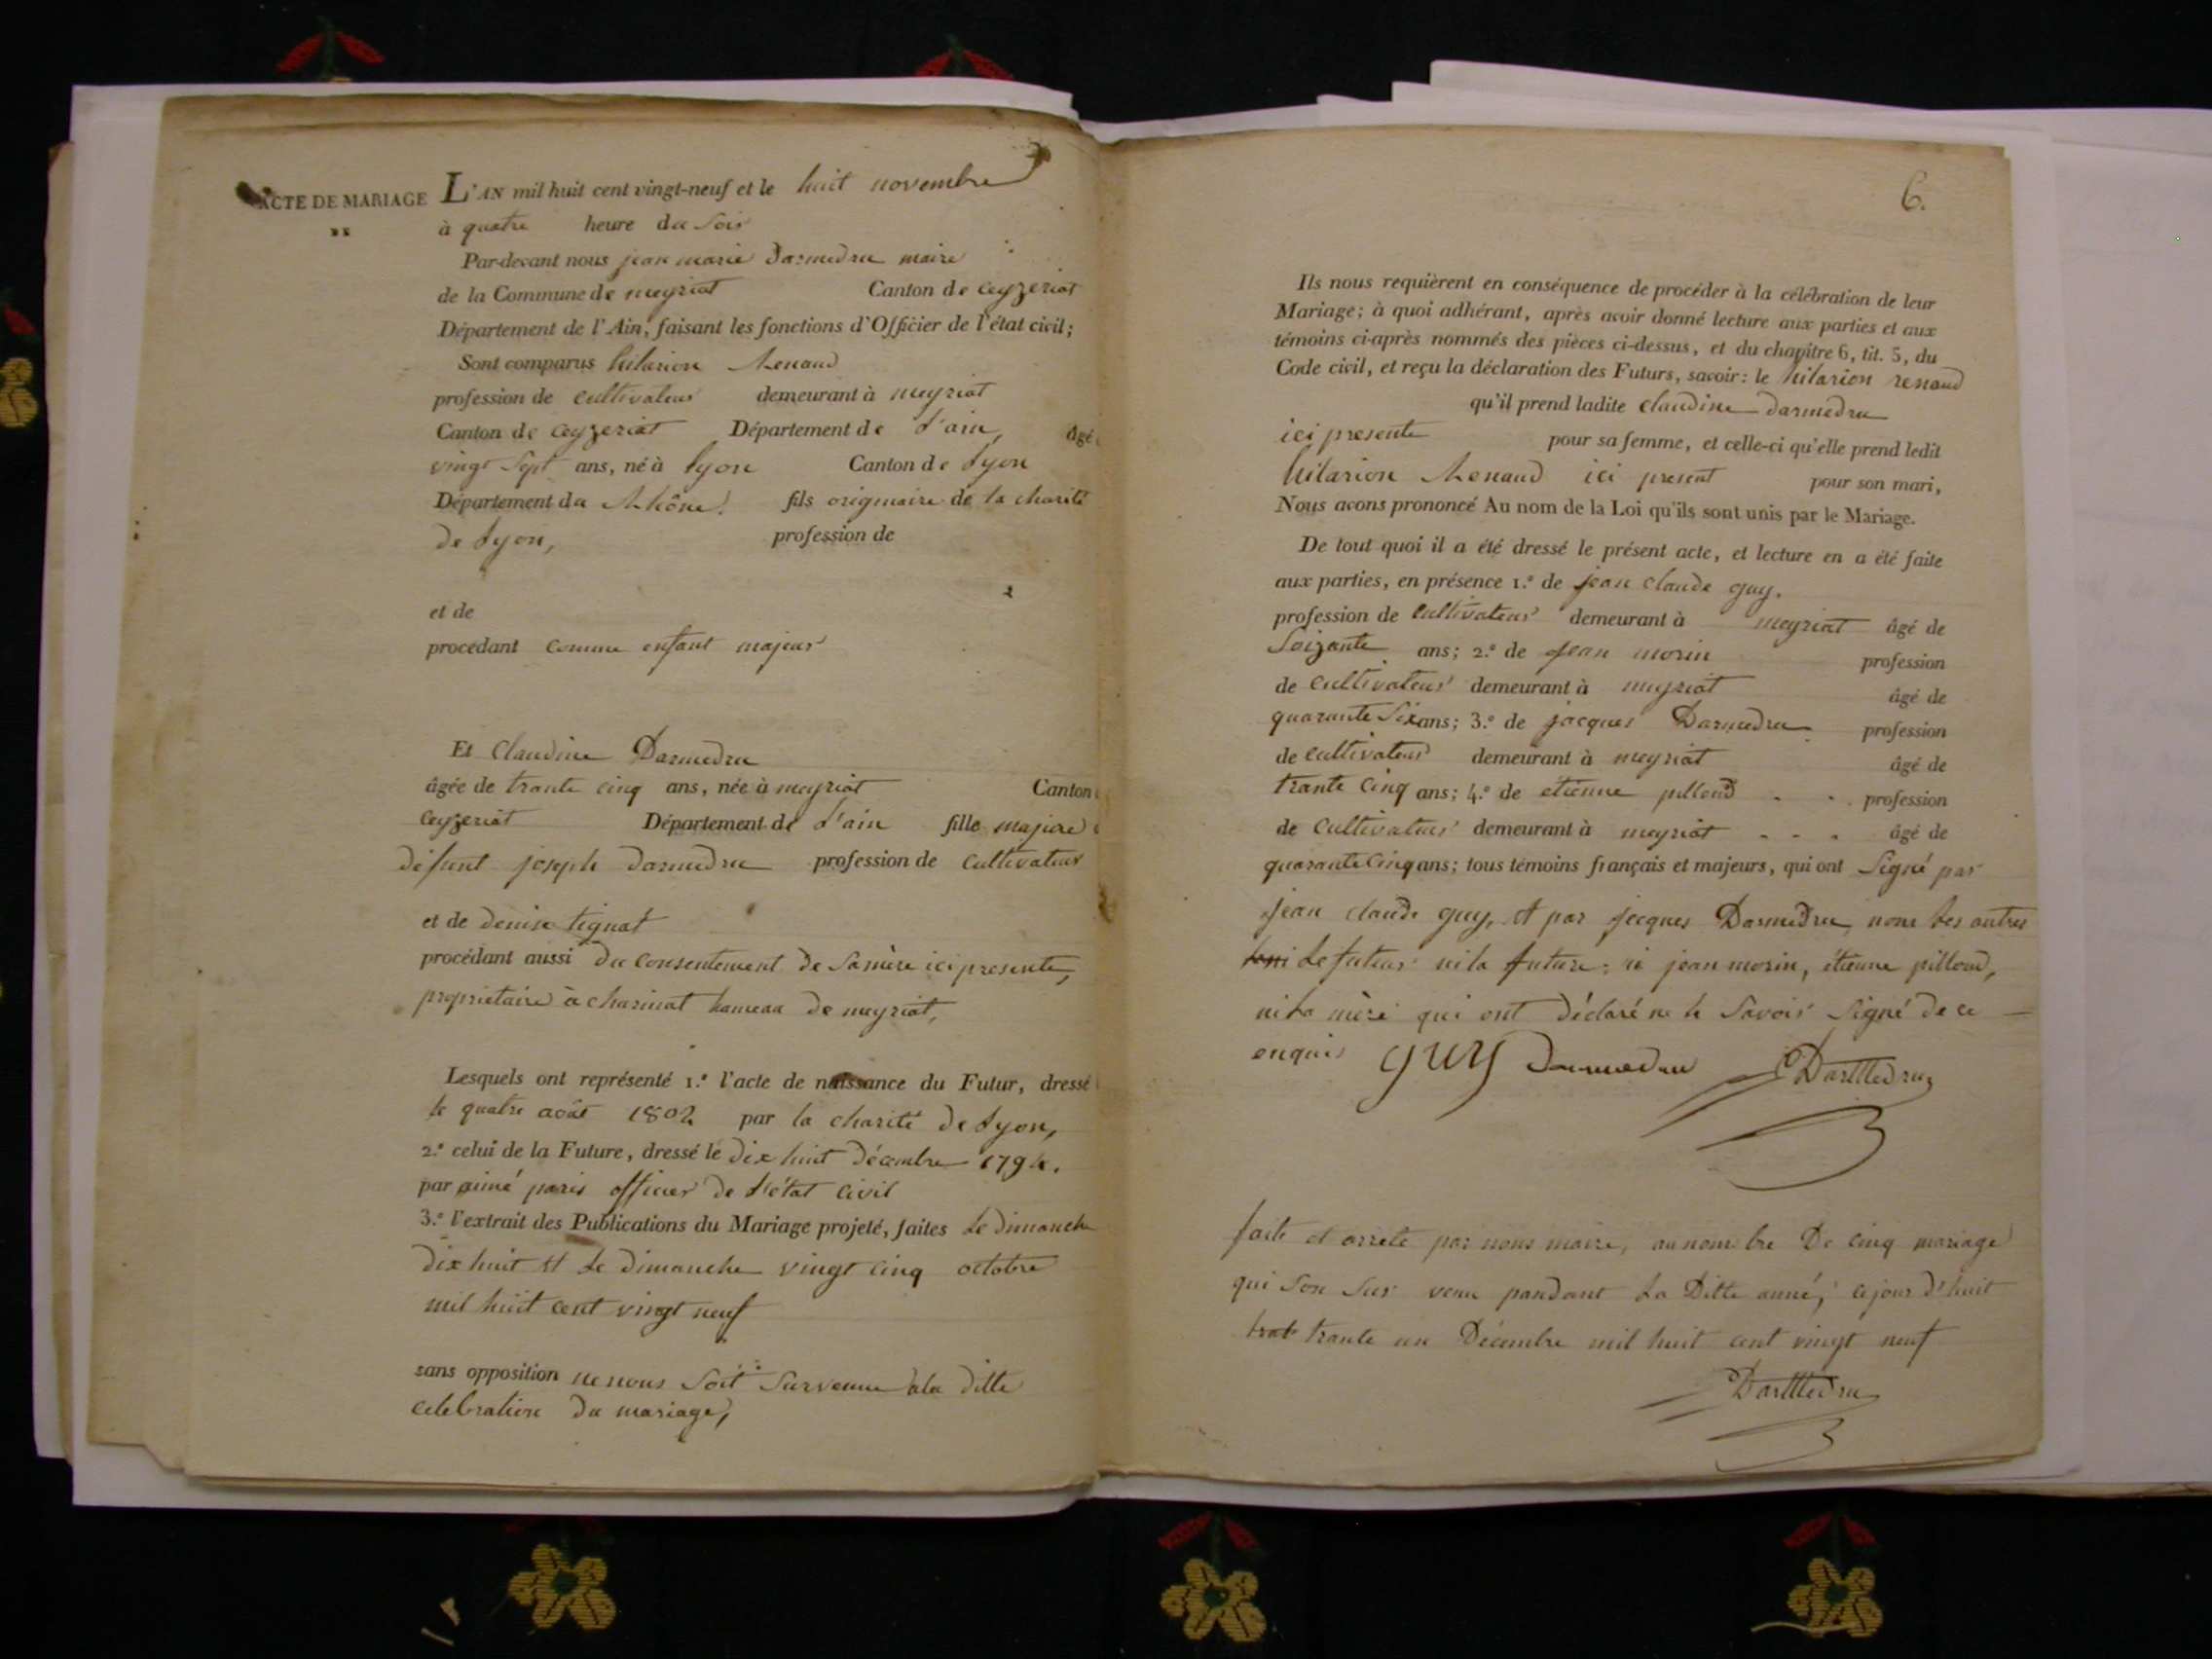 ACTE DE MARIAGE
L'AN mil huit cent vingt-neuf et le huit novembre
à quatre heure du Soir
Par-devant nous jean marie Darmedru maire
de la Commune de meyriat Canton de Ceyzeriat
Département de l'Ain, faisant les fonctions d'Officier de l'état civil;
Sont comparus hilarion Renaud
profession de cultivateur demeurant à meyriat
Canton de Ceyzeriat Département de L'ain, âgé
vingt Sept ans, né à Lyon Canton de Lyon
Département du Rhône. fils originaire de la charité
De Lyon, profession de
et de
procédant comme enfant majeur
Et Claudine Darmedru
âgée de trante cinq ans, née à meyriat Canton
Ceyzeriat Département de L'ain fille majeure
défunt joseph Darmedru profession de Cultivateur
et de Denise tignat
procédant aussi Du consentement de Sa mère ici presente,
propriétaire à charinat hameau De meyriat,
Lesquels ont représenté 1.º l'acte de naissance du Futur, dressé
le quatre août 1802 par la charité De Lyon,
2.º celui de la Future, dressé le Dix huit Décembre 1794.
par aimé paris officier De L'état Civil
3.º l'extrait des Publications du Mariage projeté, faites Le Dimanche
Dix huit et Le Dimanche vingt Cinq octobre
mil huit cent vingt neuf
sans opposition ne nous Soit Survenue à la Ditte
Celebration Du mariage,
6.
Ils nous requièrent en conséquence de procéder à la célébration de leur
Mariage; à quoi adhérant, après avoir donné lecture aux parties et aux
témoins ci-après nommés des pièces ci-dessus, et du chapitre 6, tit. 5, du
Code civil, et reçu la déclaration des Futurs, savoir: le hilarion renaud
qu'il prend ladite Claudine Darmedru
ici presente pour sa femme, et celle-ci qu'elle prend ledit
hilarion Renaud ici present pour son mari,
Nous avons prononcé Au nom de la Loi qu'ils sont unis par le Mariage.
De tout quoi il a été dressé le présent acte, et lecture en a été faite
aux parties, en présence 1.º de jean Claude guy.
profession de Cultivateur demeurant à meyriat âgé de
Soizante ans; 2.º de jean morin profession
de Cultivateur demeurant à meyriat âgé de
quarante Six ans; 3.º de jacques Darmedru profession
de Cultivateur demeurant à meyriat âgé de
trante Cinq ans; 4.º de etienne pilloud profession
de Cultivateur demeurant à meyriat âgé de
quarante Cinq ans; tous témoins français et majeurs, qui ont Signé par
jean claude guy, et par jacques Darmedru, non Les autres
Le futur ni la future; ni jean morin, étienne pilloud,
ni La mère qui ont Déclaré ne le Savoir Signé De ce
enquis GUY Darmedru Darmedru
faite et arreté par nous maire, au nombre De cinq mariage
qui Son Sur venu pandant La Ditte anné, ce jour D'huit
trante un Décembre mil huit cent vingt neuf
Darmedru